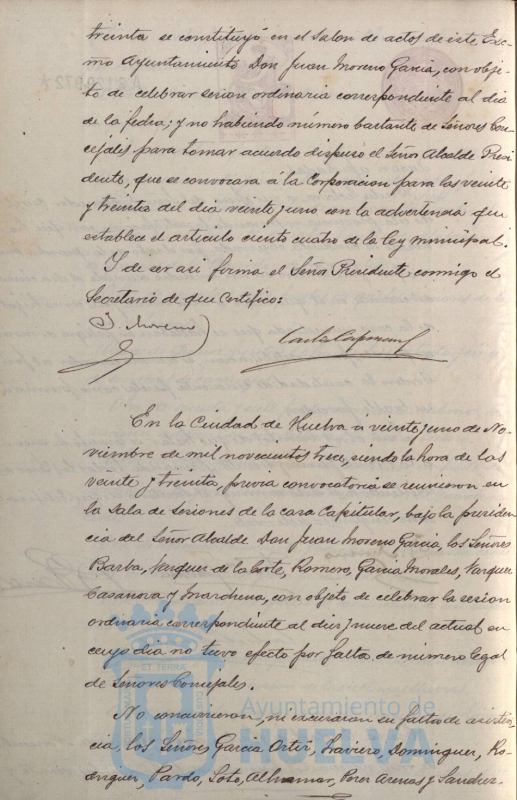 treinta se constituyó en el Salon de actos de este Exc-
mo Ayuntamiento Don Juan Moreno Garcia, con obje-
to de celebrar sesion ordinaria correspondiente al dia
de la fecha; y no habiendo número bastante de Señores Con-
cejales para tomar acuerdo dispuso el Señor Alcalde Presi-
dente, que se convocara á la Corporacion para las veinte
y treinta del dia veinte y uno con la advertencia que
establece el articulo ciento cuatro de la ley municipal.
Y de ser asi firma el Señor Presidente conmigo el
Secretario de que certifico:
J. Moreno
En la Ciudad de Huelva á veinte y uno de No-
viembre de mil novecientos trece, siendo la hora de las
veinte y treinta, previa convocatoria se reunieron en
la Sala de Sesiones de la casa Capitular, bajo la presiden-
cia del Señor Alcalde Don Juan Moreno Garcia, los Señores
Barba, Vazquez de la Corte, Romero, Garcia Morales, Vazquez
Casanova y Marchena, con objeto de celebrar la sesion
ordinaria correspondiente al diez y nueve del actual en
cuyo dia no tuvo efecto por falta de número legal
de Señores Concejales.
No concurrieron, ni excusaron su falta de asisten-
cia, los Señores Garcia Ortiz, Traviero, Dominguez, Ro-
driguez, Pardo, Soto, Alhamar, Perez Arenas y Sanchez
Ayuntamiento de
HUELVA